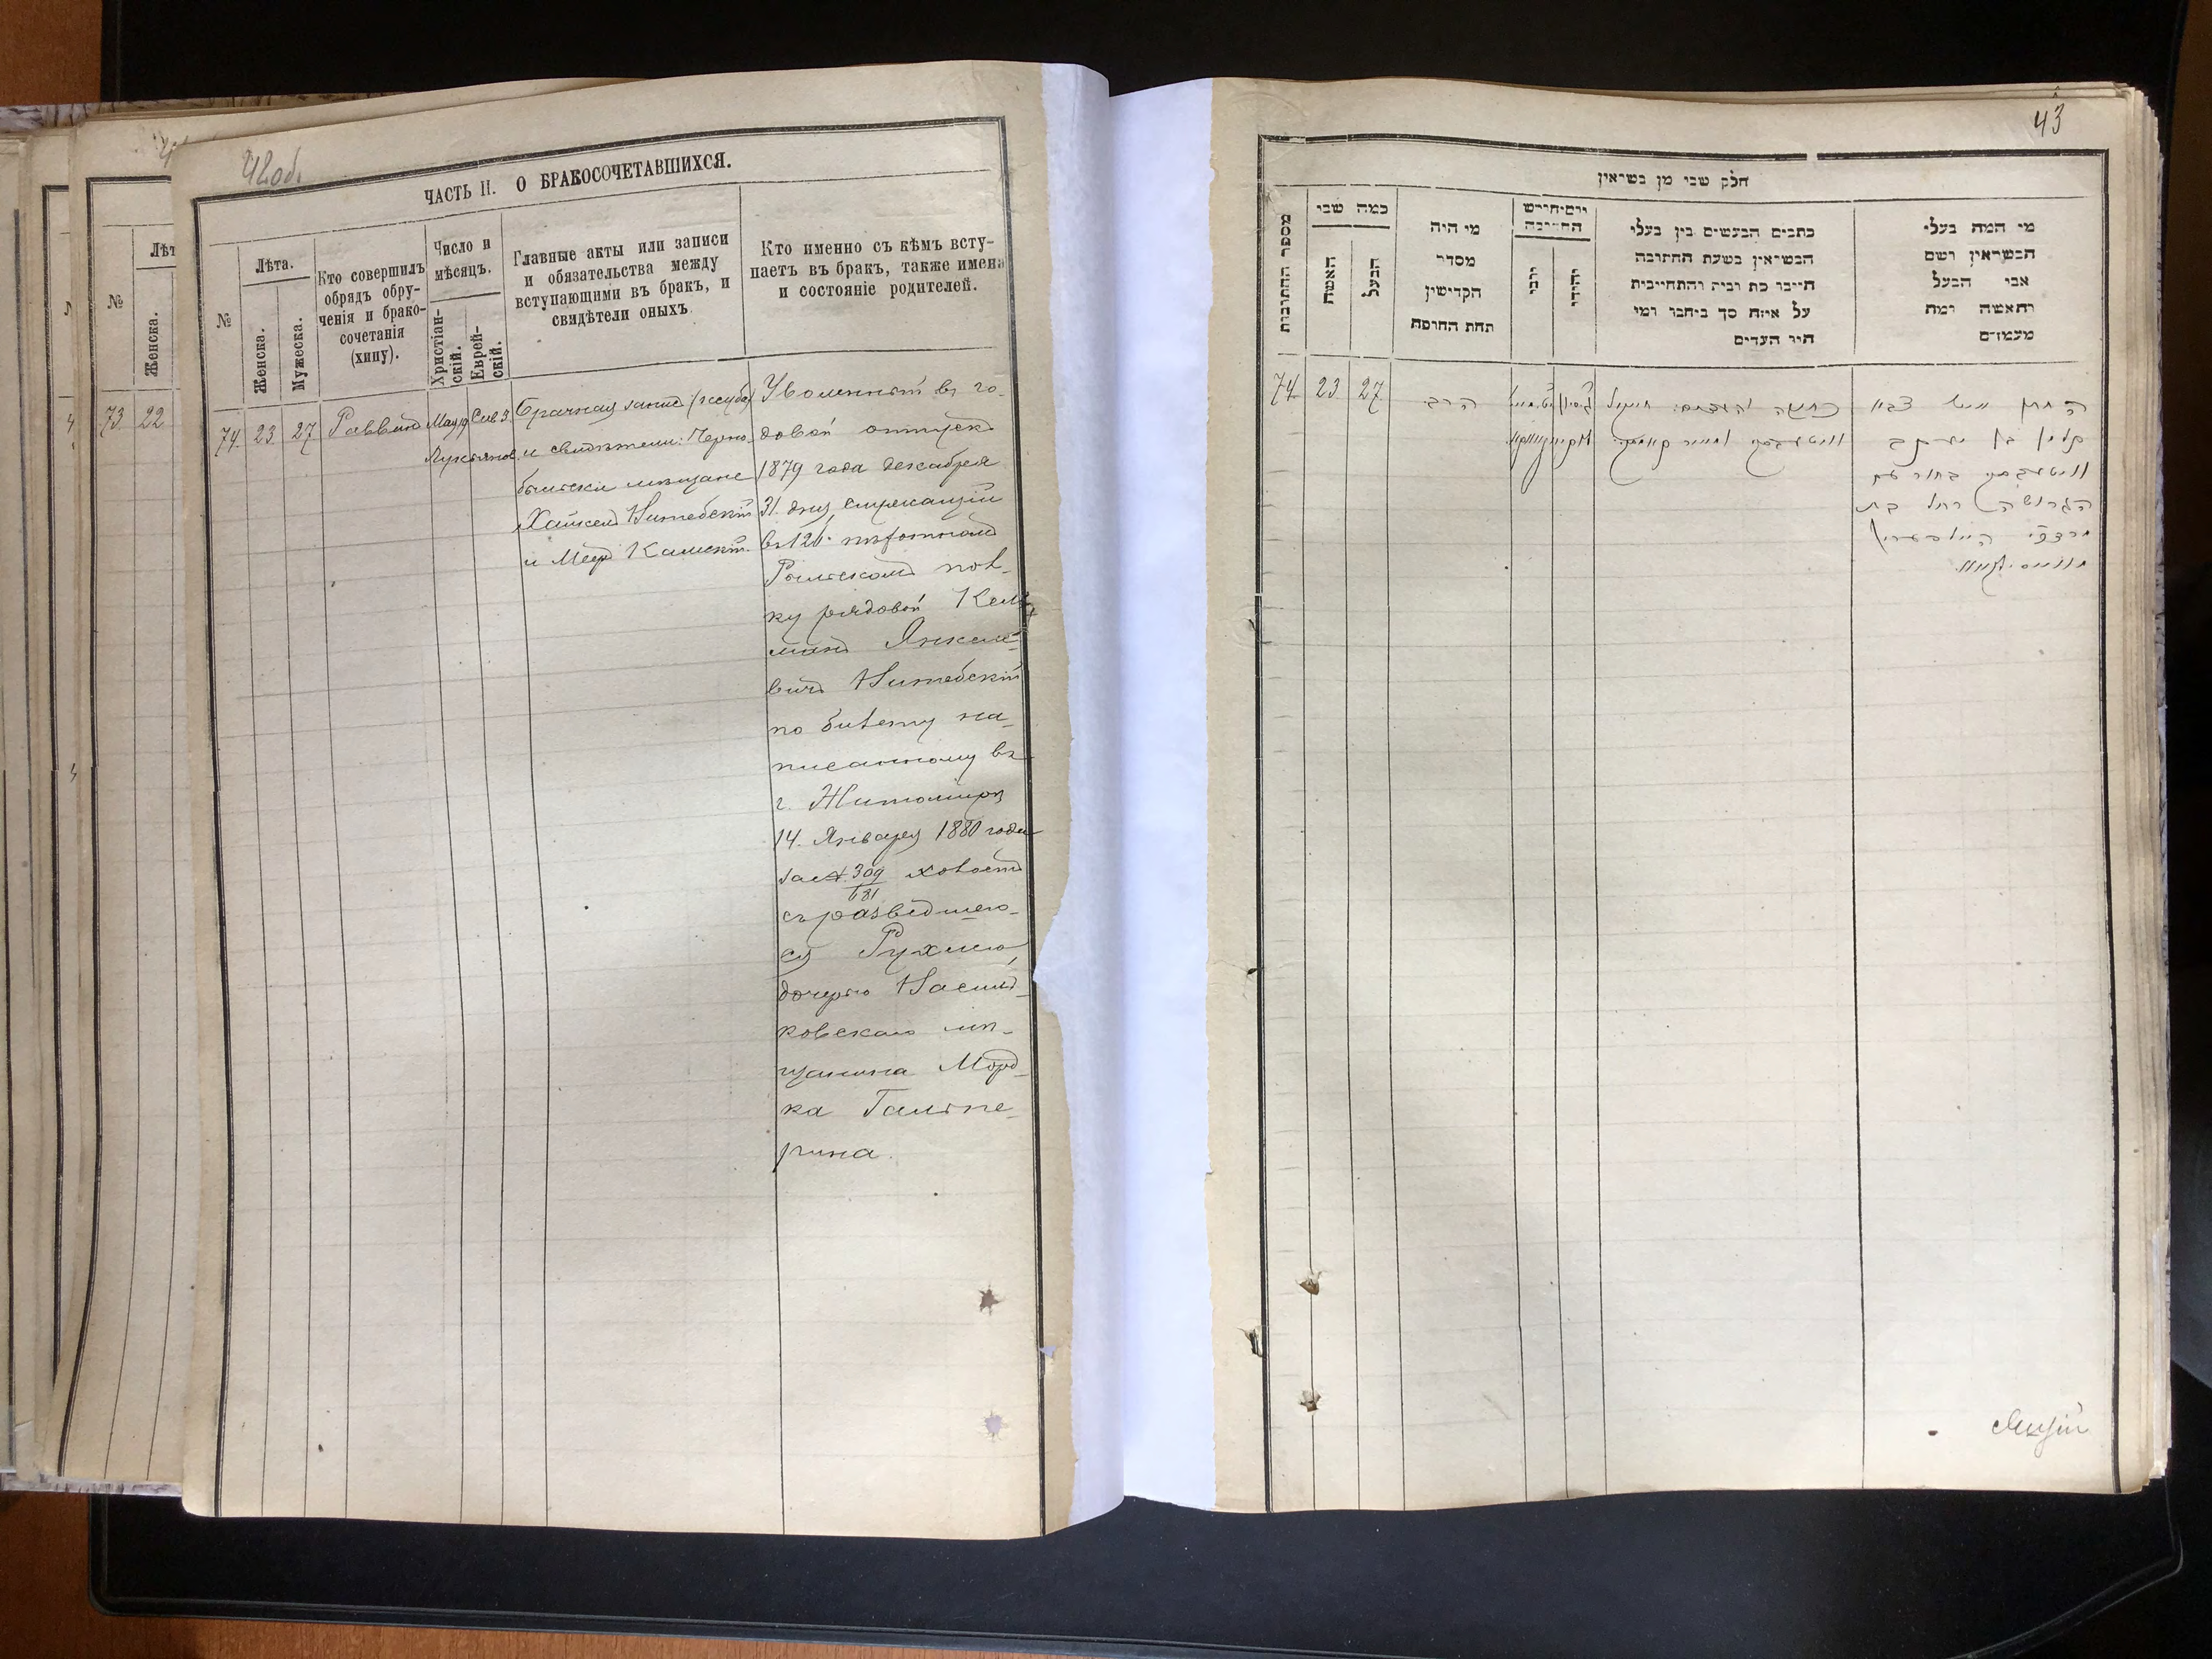 42об.
ЧАСТЬ II. О БРАКОСОЧЕТАВШИХСЯ.
№
Лѣта.
Женска.
Мужеска.
Кто совершилъ
обрядъ обру-
ченія и брако-
сочетанія
(хипу).
Число и
мѣсяцъ.
Христіан-
скій.
Еврей-
скій.
Главные акты или записи
и обязательства между
вступающими въ бракъ, и
свидѣтели оныхъ.
Кто именно съ кѣмъ всту-
паетъ въ бракъ, также имена
и состояніе родителей.
74.
23.
27
Раввинъ
Мая 19
Сив 3.
Брачная запись (ксуба)
и свидѣтели: Черно-
быльскіе мѣщане
Хаймъ Витебскій
и Меер
Уволенный въ го-
довой отпускъ
1879 года декабря
31. дня служащій
въ 126. пѣхотномъ
Рыльскомъ пол-
ку рядовой Кель-
манъ Янкеле-
вичъ Витебскій
по билету на-
писанному въ
г. Житомирѣ
14. Января 1880 года
за № 309/631 холостъ
съ разведшею-
ся Рухлею
дочерью Василь-
ковскаго мѣ-
щанина Морд-
ка Гальпе-
рина.
№
Лѣт
Женска.
73.
22
43
חלק שני מן נשואין
מספר החתונות
כמה שני
האשה
הבעל
מי היה
מסדר
הקדושין
תחת החופה
יום וחודש
החתונה
נוצרי
יהודי
כתבים הנעשים בין בעלי
הנשואין בשעת החתונה
היינו כת׳ וביה והתחייבות
על איזה סך ביחבו ומי
היו העדים
מי המה בעלי
הנשואין ושם
אבי הבעל
והאשה ומה
מעמדם
74.
23
27
הרב
כתובה והעדים:
וויטעבסקי ומאיר
החתן איש צבא
קלמן בן יעקב
וויטעבסקי בחור עם
הגרושה רחל בת
מרדכי היילפערין